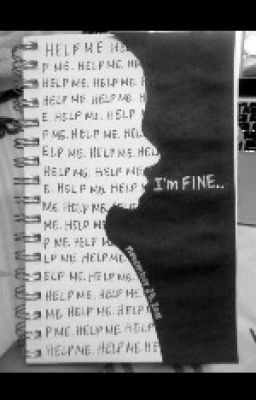 HELP ME. HEL
P ME. HELP ME.
HELP ME. HELP
HELP ME. HELP M
E. HELP ME. HELP
P ME. HELP ME. HELP
ELP ME. HELP ME.
HELP ME. HELP
E. HELP ME. HELP Y
I'm FINE..
ME. HELP ME. HE
ME. HELP
P ME. HELP ME
HELP ME. HELP
ELP ME. HELP ME.
HELP ME. HELP ME.
ME HELP ME. HELP
P ME. HELP ME HELP
HELP ME. HELP ME. HE
november